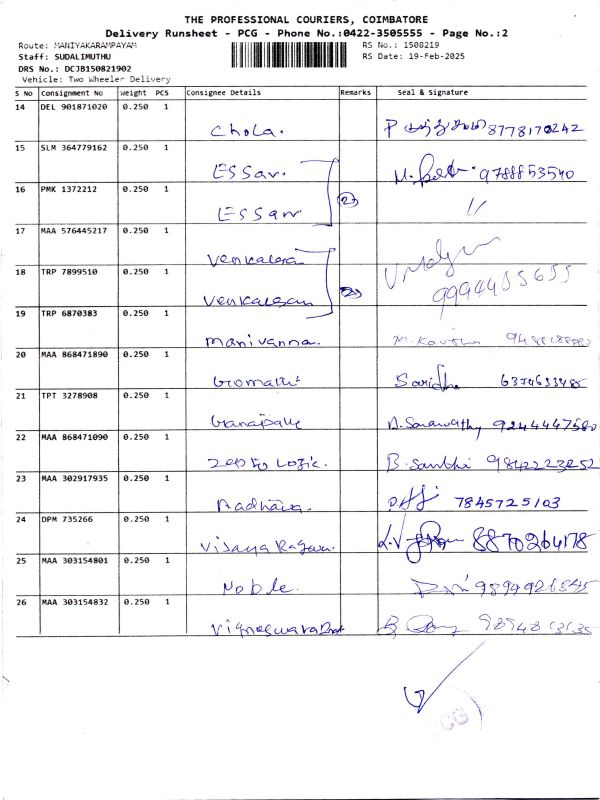 THE PROFESSIONAL COURIERS, COIMBATORE
Delivery Runsheet - PCG - Phone No.:0422-3505555 - Page No.:2
Route: MANIYAKARAMPAYAM RS No.: 1508219
Staff: SUDALIMUTHU RS Date: 19-Feb-2025
DRS No.: DCJB150821902
Vehicle: Two Wheeler Delivery
S No Consignment No Weight PCS Consignee Details Remarks Seal & Signature
14 DEL 901871020 0.250 1
Chola. P 8778170242
15 SLM 364779162 0.250 1
Essar. M. 9788853540
16 PMK 1372212 0.250 1
Essar 2 "
17 MAA 576445217 0.250 1
Venkatesa
18 TRP 7899510 0.250 1
Venkatesan 2 9994455655
19 TRP 6870383 0.250 1
Manivanna. M.
20 MAA 868471890 0.250 1
Gomathi Saridha 6374633485
21 TPT 3278908 0.250 1
Ganapathy A. Sarawathy 9244447580
22 MAA 868471090 0.250 1
Zepto Logic. B. Santhi 9842223252
23 MAA 302917935 0.250 1
Radhava. 7845725103
24 DPM 735266 0.250 1
Vijaya Ragavan L.V 8870264178
25 MAA 303154801 0.250 1
Noble. 9894926545
26 MAA 303154832 0.250 1
Vigneswara B
CG